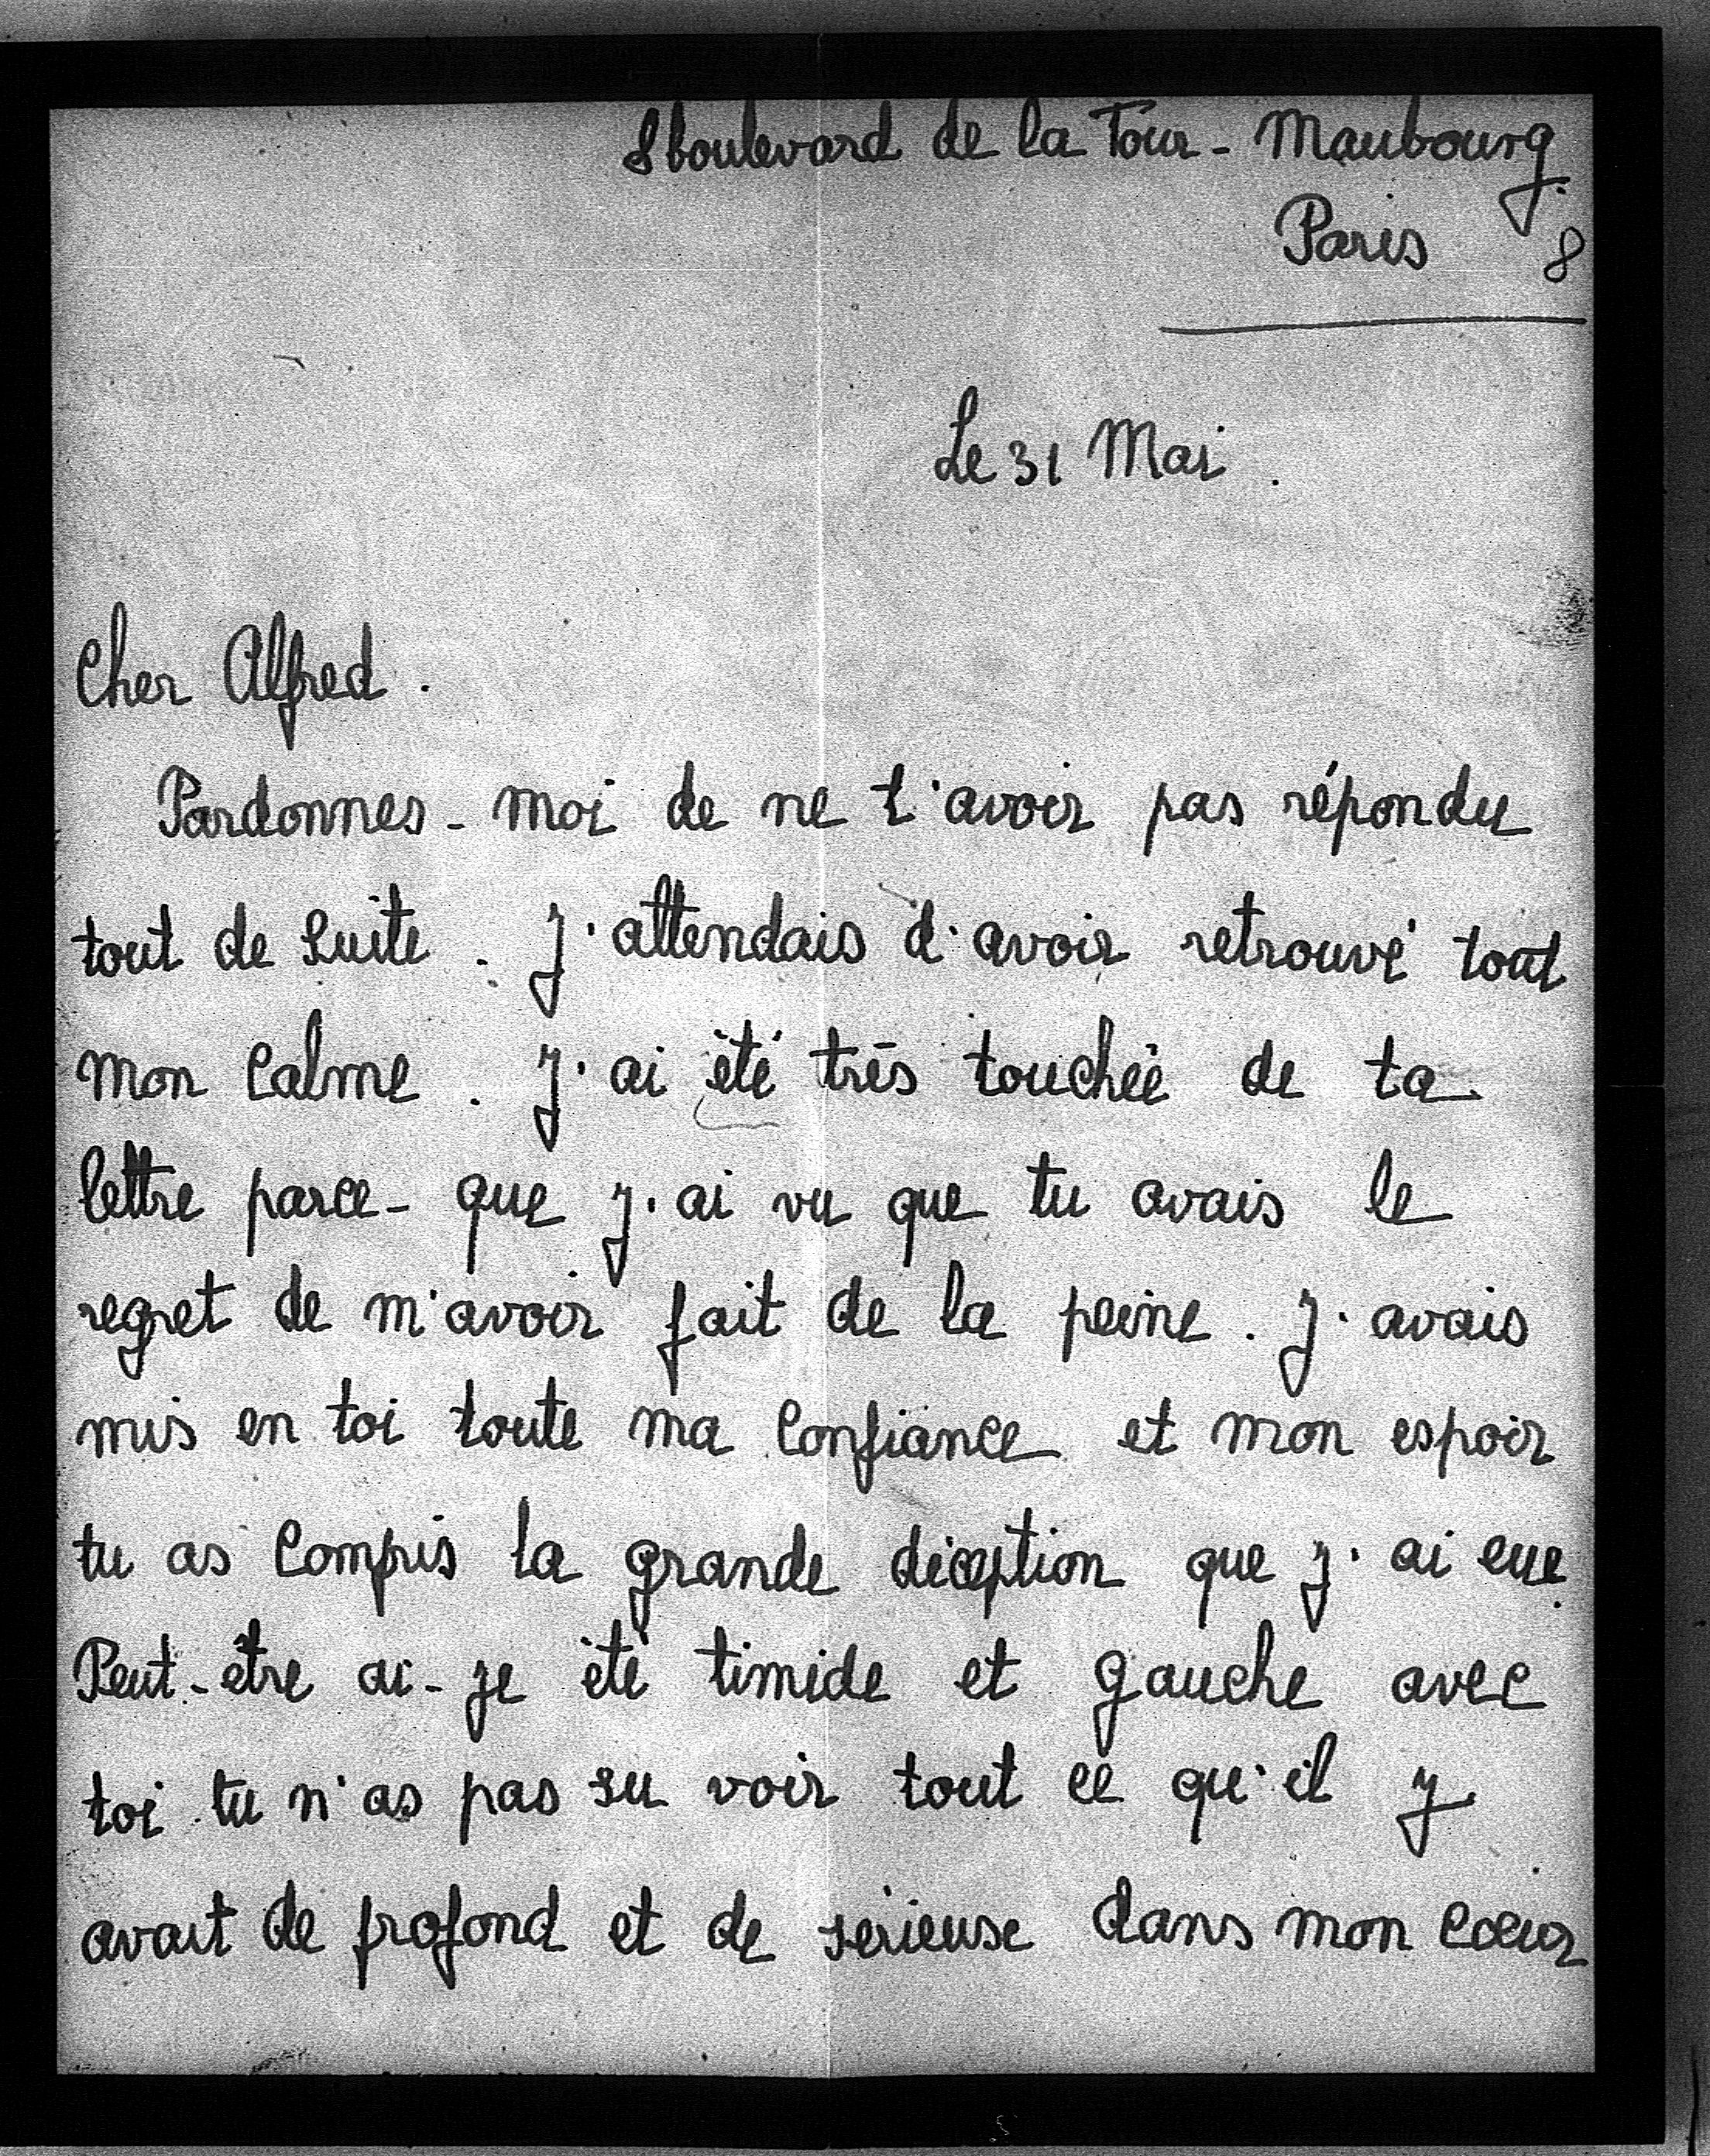 8 boulevard de la Tour-Maubourg.
Paris 8
Le 31 Mai.
Cher Alfred.
Pardonnes-moi de ne t'avoir pas répondu
tout de suite. J'attendais d'avoir retrouvé tout
mon calme. J'ai été très touchée de ta
lettre parce-que j'ai vu que tu avais le
regret de m'avoir fait de la peine. J'avais
mis en toi toute ma confiance et mon espoir
tu as compris la grande déception que j'ai eue.
Peut-être ai-je été timide et gauche avec
toi tu n'as pas su voir tout ce qu'il y
avait de profond et de sérieuse dans mon cœur